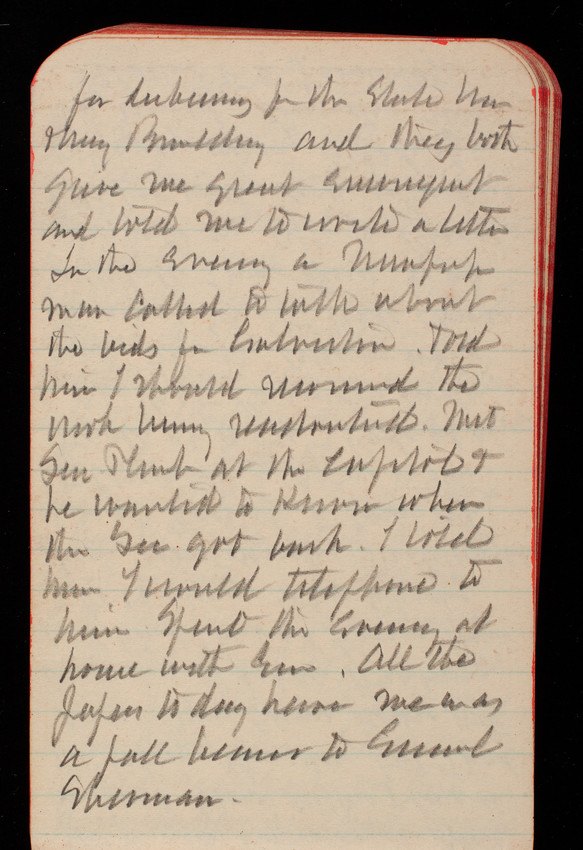 for the State War
Navy Building and they both
give me great encouragement
and told me to write a letter
In the Evening a Newspap
man called to talk about
the bids for Galveston. Told
him I should recommend the
work being readvertised. Met
Sen Plumb at the Capitol &
he wanted to know when
the Sec got back. I told
him I would telephone to
him Spent the Evening at
home with Eva. All the
Papers to day have me as
a pall bearer to General
Sherman.